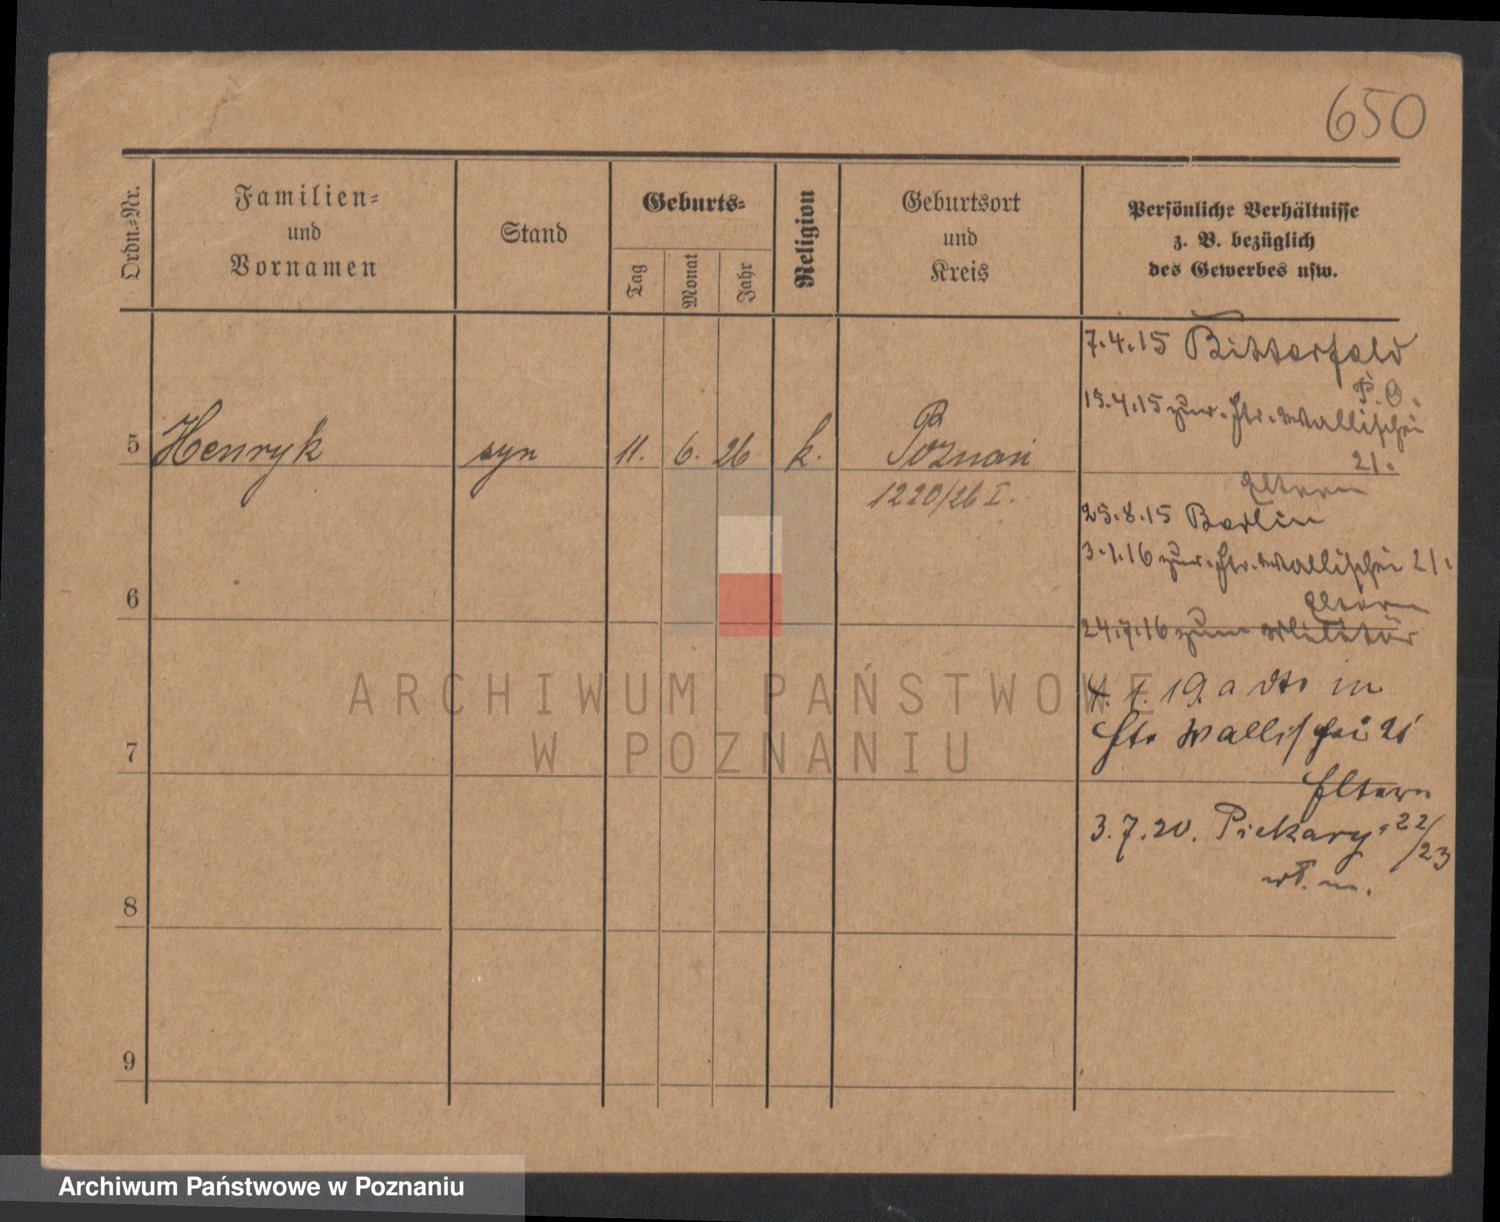 650
Ordn.-Nr.
Familien-
und
Vornamen
Stand
Geburts-
Tag
Monat
Jahr
Religion
Geburtsort
und
Kreis
Persönliche Verhältnisse
z. B. bezüglich
des Gewerbes usw.
5 Henryk syn 11. 6. 26 k. Poznań
1220/26 I.
6
7
8
9
7.4.15 Bitterfeld
P.O.
15.4.15 zur. Str. Wallischei
21.
Eltern
25.8.15 Berlin
3.1.16 zur. Str. Wallischei 21.
Eltern
24.7.16 zum Militär
4. 1. 19. a dto in
Str Wallischei 21
Eltern
3.7.20. Piekary 22/23
ARCHIWUM PAŃSTWOWE
W POZNANIU
Archiwum Państwowe w Poznaniu